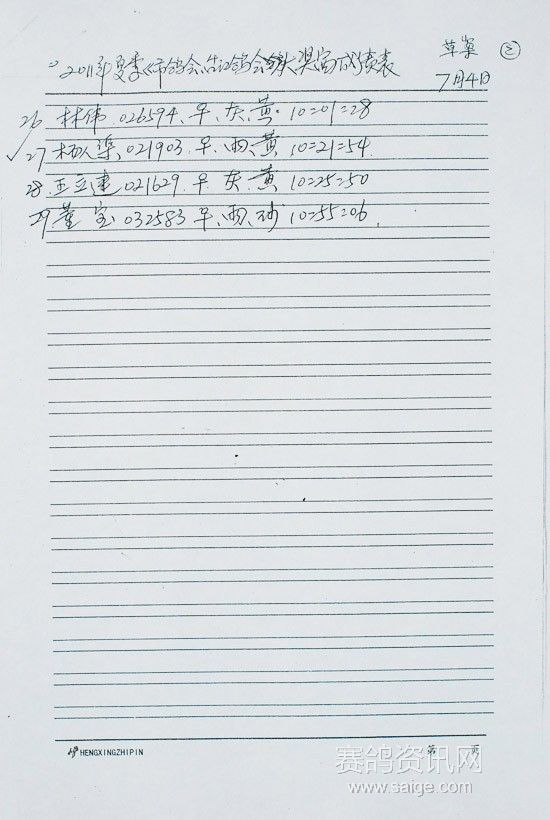 草案 ②
2011年夏季《市鸽会、 鸽会 大奖赛》成绩表
7月4日
26 林伟、026594、早、灰、黄、10=01=28
✓27 杨人渠、021903、早、雨、黄 10=21=54
28 王立建 021629、早、灰、黄 10=25=50
29 董宝 032583 早、雨、砂 10=55=06、
HENGXINGZHIPIN
第 页
赛鸽资讯网
www.saige.com